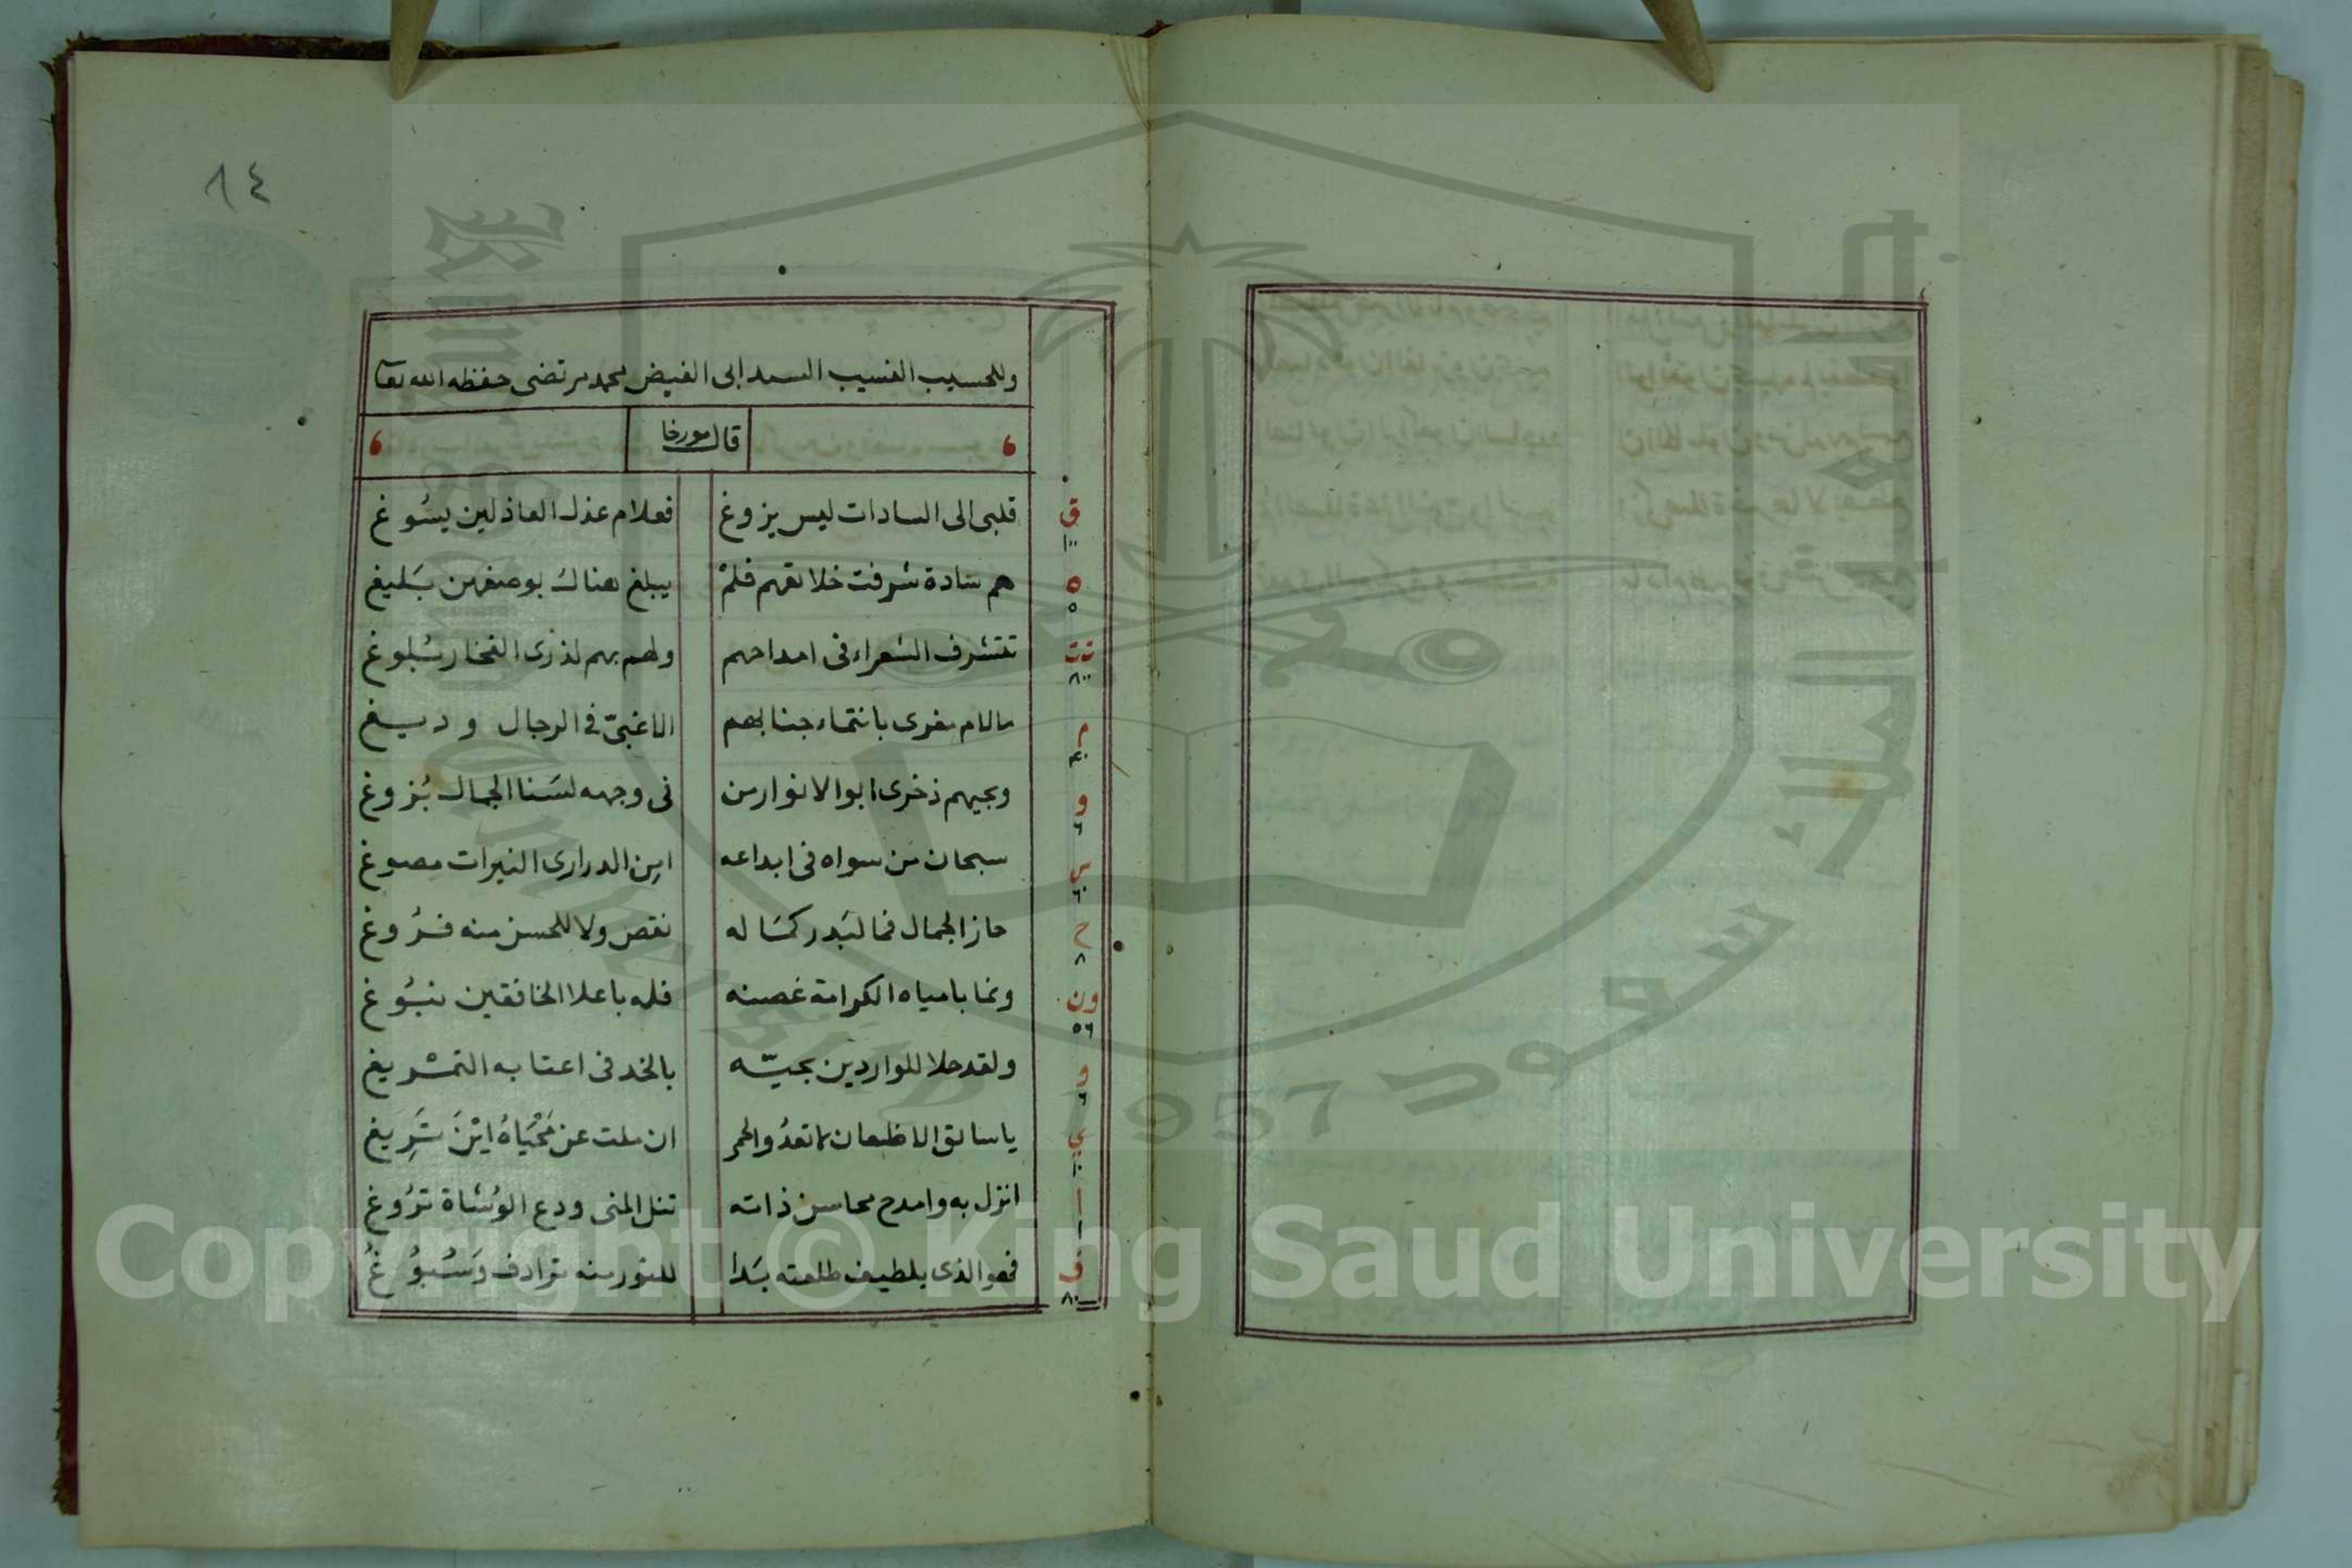 ٨٤
وللحسيب النسيب السيد ابى الفيض محمد مرتضى حفظه الله تعا
قال مورخا
ق قلبى الى السادات ليس يزوغ فعلام عذل العاذلين يسُوغ
١٠٠
ه هم سادة شرفت خلائقهم فلمْ يبلغ هناك بوصفهن بَليغ
٥
تت تتشرف الشعراء فى امداحهم ولهم بهم لذرى الفخار بُلوغ
٨٠٠
م مالام مغرى بانتماء جنابهم الا غبىّ فى الرجال وديغ
٤٠
و وبحيهم ذخرى ابو الانوار من فى وجهه لسَنا الجمال بُزوغ
٦
س سبحان من سواه فى ابداعه اين الدرارى النيرات مصوغ
٦٠
ح حاز الجمال فما لبَدر كمَاله نقص ولا للحسن منه فرُوغ
٨
ون ونما بامياه الكرامة غصنه فله باعلا الخافقين نبُوغ
٥٦
و ولقد حلا للواردين بحيّه بالخد فى اعتابه التمْريغ
٦
ي ياسائق الاظعان لا تعدُ والحمر ان ملت عن مَحْيَاهُ ايْنَ تَرِيغ
١٠
ا انزل به وامدح محاسن ذاته تنل المنى ودع الوُشاة ترُوغ
١
ف فهو الذى بلطيف طلعته بَدا للنور منه ترادف وَسُبُوُغُ
٨٠
Copyright © King Saud University
1957